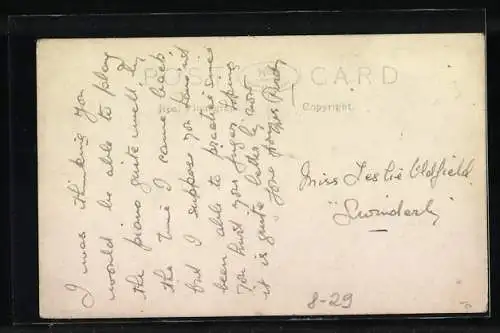 POST CARD
Real Photograph
Copyright.
I was thinking you
would be able to play
the piano quite well by
the time I came back
but I suppose you have not
been able to practise since
you hurt your finger hoping
it is quite better by now
love from
Miss Leslie Oldfield
8-29